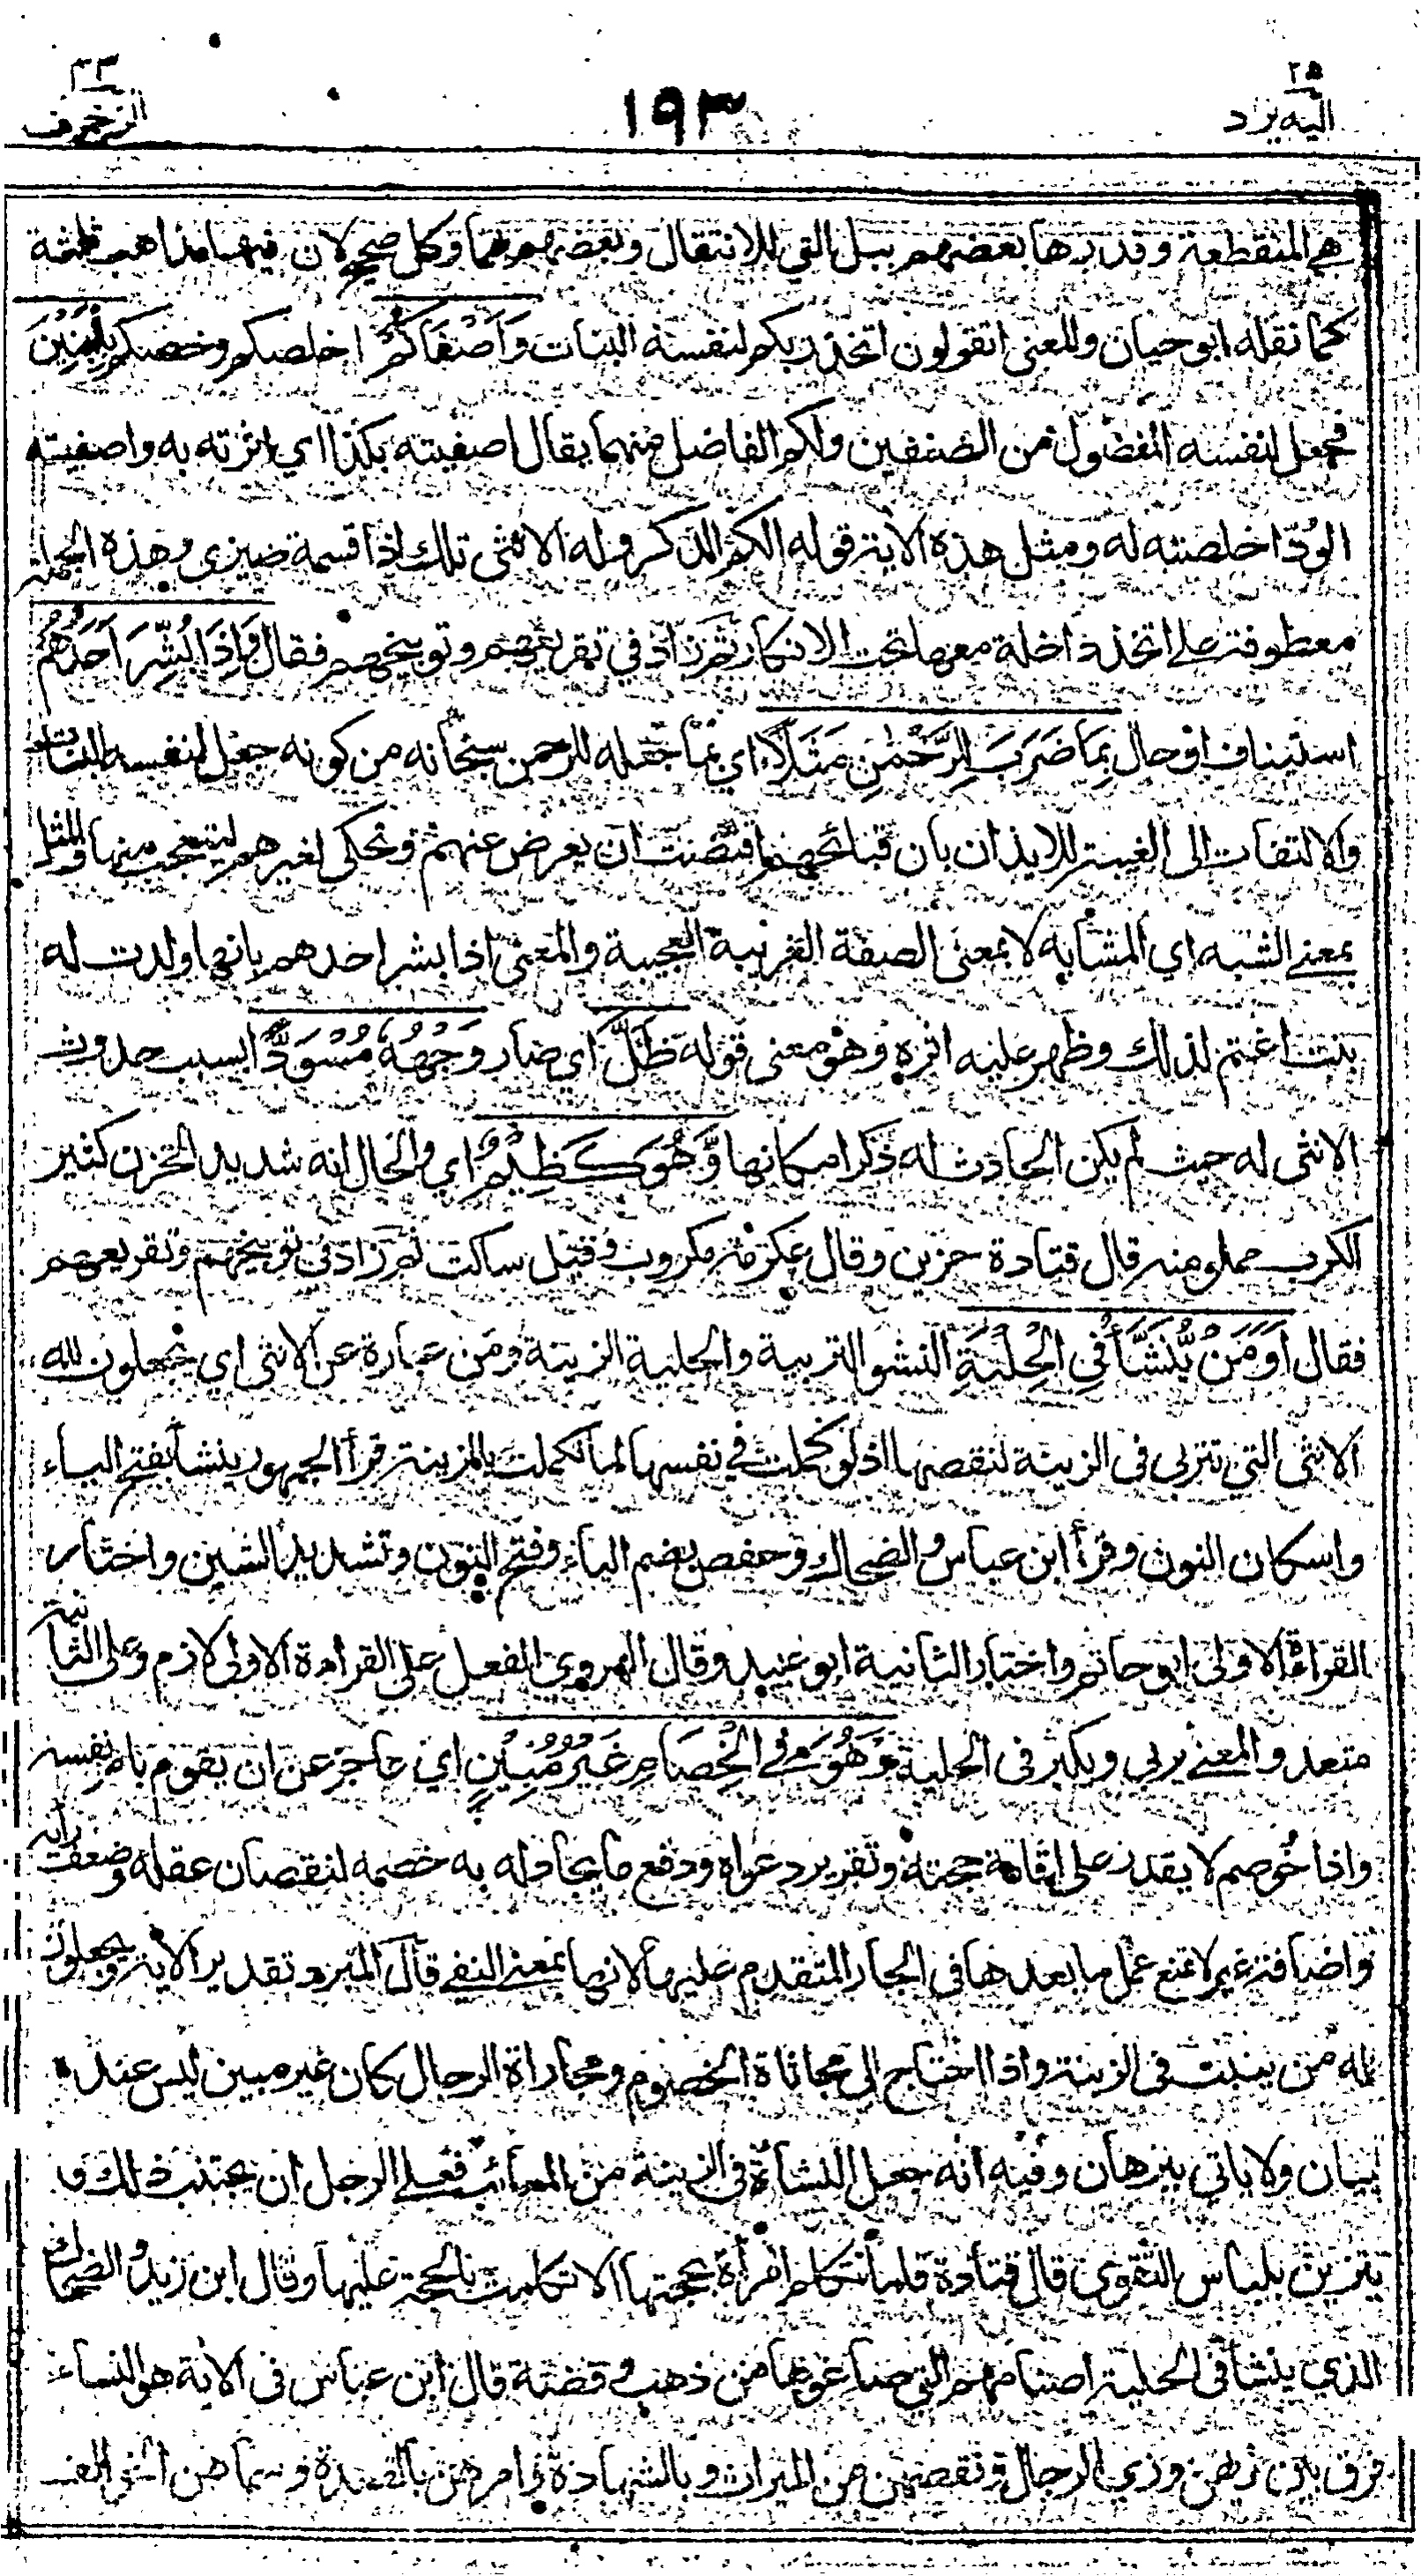 ٢٥
اليه يرد
١٩٣
٤٣
الزخرف
هي المنقطعة وقدرها بعضهم ببل التي للانتقال وبعضهم بهما وكل صحيح لان فيها مذاهب ثلثة
كما نقله ابو حيان والمعنى اتقولون اتخذ ربكم لنفسه البنات وَأَصْفَاكُمْ اخلصكم وخصكم بِالْبَنِينَ
فجعل لنفسه المفضول من الصنفين ولكم الفاضل منهما يقال اصفيته بكذا اي اثرته به واصفيته
الودّ اخلصته له ومثل هذه الاية قوله الكم الذكر وله الانثى تلك اذا قسمة ضيزى وهذه الجملة
معطوفة على اتخذ داخلة معها تحت الانكار ثم زاد في تقريعهم وتوبيخهم فقال وَإِذَا بُشِّرَ أَحَدُهُمْ
استيناف او حال بِمَا ضَرَبَ لِلرَّحْمٰنِ مَثَلًا اي بما جعله للرحمن سبحانه من كونه جعل لنفسه البنات
والالتفات الى الغيبة للايذان بان قبائحهم اقتضت ان يعرض عنهم وتحكى لغيرهم ليتعجب منها والمثل
بمعنى الشبه اي المشابه لا بمعنى الصفة الغريبة العجيبة والمعنى اذا بشر احدهم بانها ولدت له
بنت اغتم لذلك وظهر عليه اثره وهو معنى قوله ظَلَّ اي صار وَجْهُهُ مُسْوَدًّا بسبب حدوث
الانثى له حيث لم يكن الحادث له ذكرا مكانها وَّهُوَ كَظِيْمٌ اي والحال انه شديد الحزن كثير
الكرب مملو منه قال قتادة حزين وقال عكرمة مكروب وقيل ساكت ثم زاد في توبيخهم وتقريعهم
فقال أَوَمَنْ يُّنَشَّأُ فِي الْحِلْيَةِ النشو التربية والحلية الزينة ومن عبارة عن الانثى اي يجعلون لله
الانثى التي تتربى في الزينة لنقصها اذ لو كملت في نفسها لما تكملت بالزينة قرأ الجمهور ينشأ بفتح الياء
واسكان النون وقرأ ابن عباس والضحاك وحفص بضم الياء وفتح النون وتشديد الشين واختار
القراءة الاولى ابو حاتم واختار الثانية ابو عبيد وقال الهروي الفعل على القراءة الاولى لازم وعلى الثانية
متعد والمعنى يربى ويكبر في الحلية وَهُوَ فِي الْخِصَامِ غَيْرُ مُبِيْنٍ اي عاجز عن ان يقوم بامر نفسه
واذا خوصم لا يقدر على اقامة حجته وتقرير دعواه ودفع ما يجادله به خصمه لنقصان عقله وضعف رأيه
واضافة غير لا تمنع عمل ما بعدها في الجار المتقدم عليها لانها بمعنى النفي قال المبرد تقدير الاية ويجعلون
له من ينبت في الزينة واذا احتاج الى مجاثاة الخصوم ومجاراة الرجال كان غير مبين ليس عنده
بيان ولا ياتي ببرهان وفيه انه جعل النشأة في الزينة من المعائب فعلى الرجل ان يجتنب ذلك و
يتزين بلباس التقوى قال قتادة قلما تتكلم امرأة بحجتها الا تكلمت بالحجة عليها وقال ابن زيد والضحاك
الذي ينشأ في الحلية اصنامهم التي صاغوها من ذهب وفضة قال ابن عباس في الاية هو النساء
فرق بين زيهن وزي الرجال ونقصهن من الميراث وبالشهادة وامرهن بالقعدة وسماهن